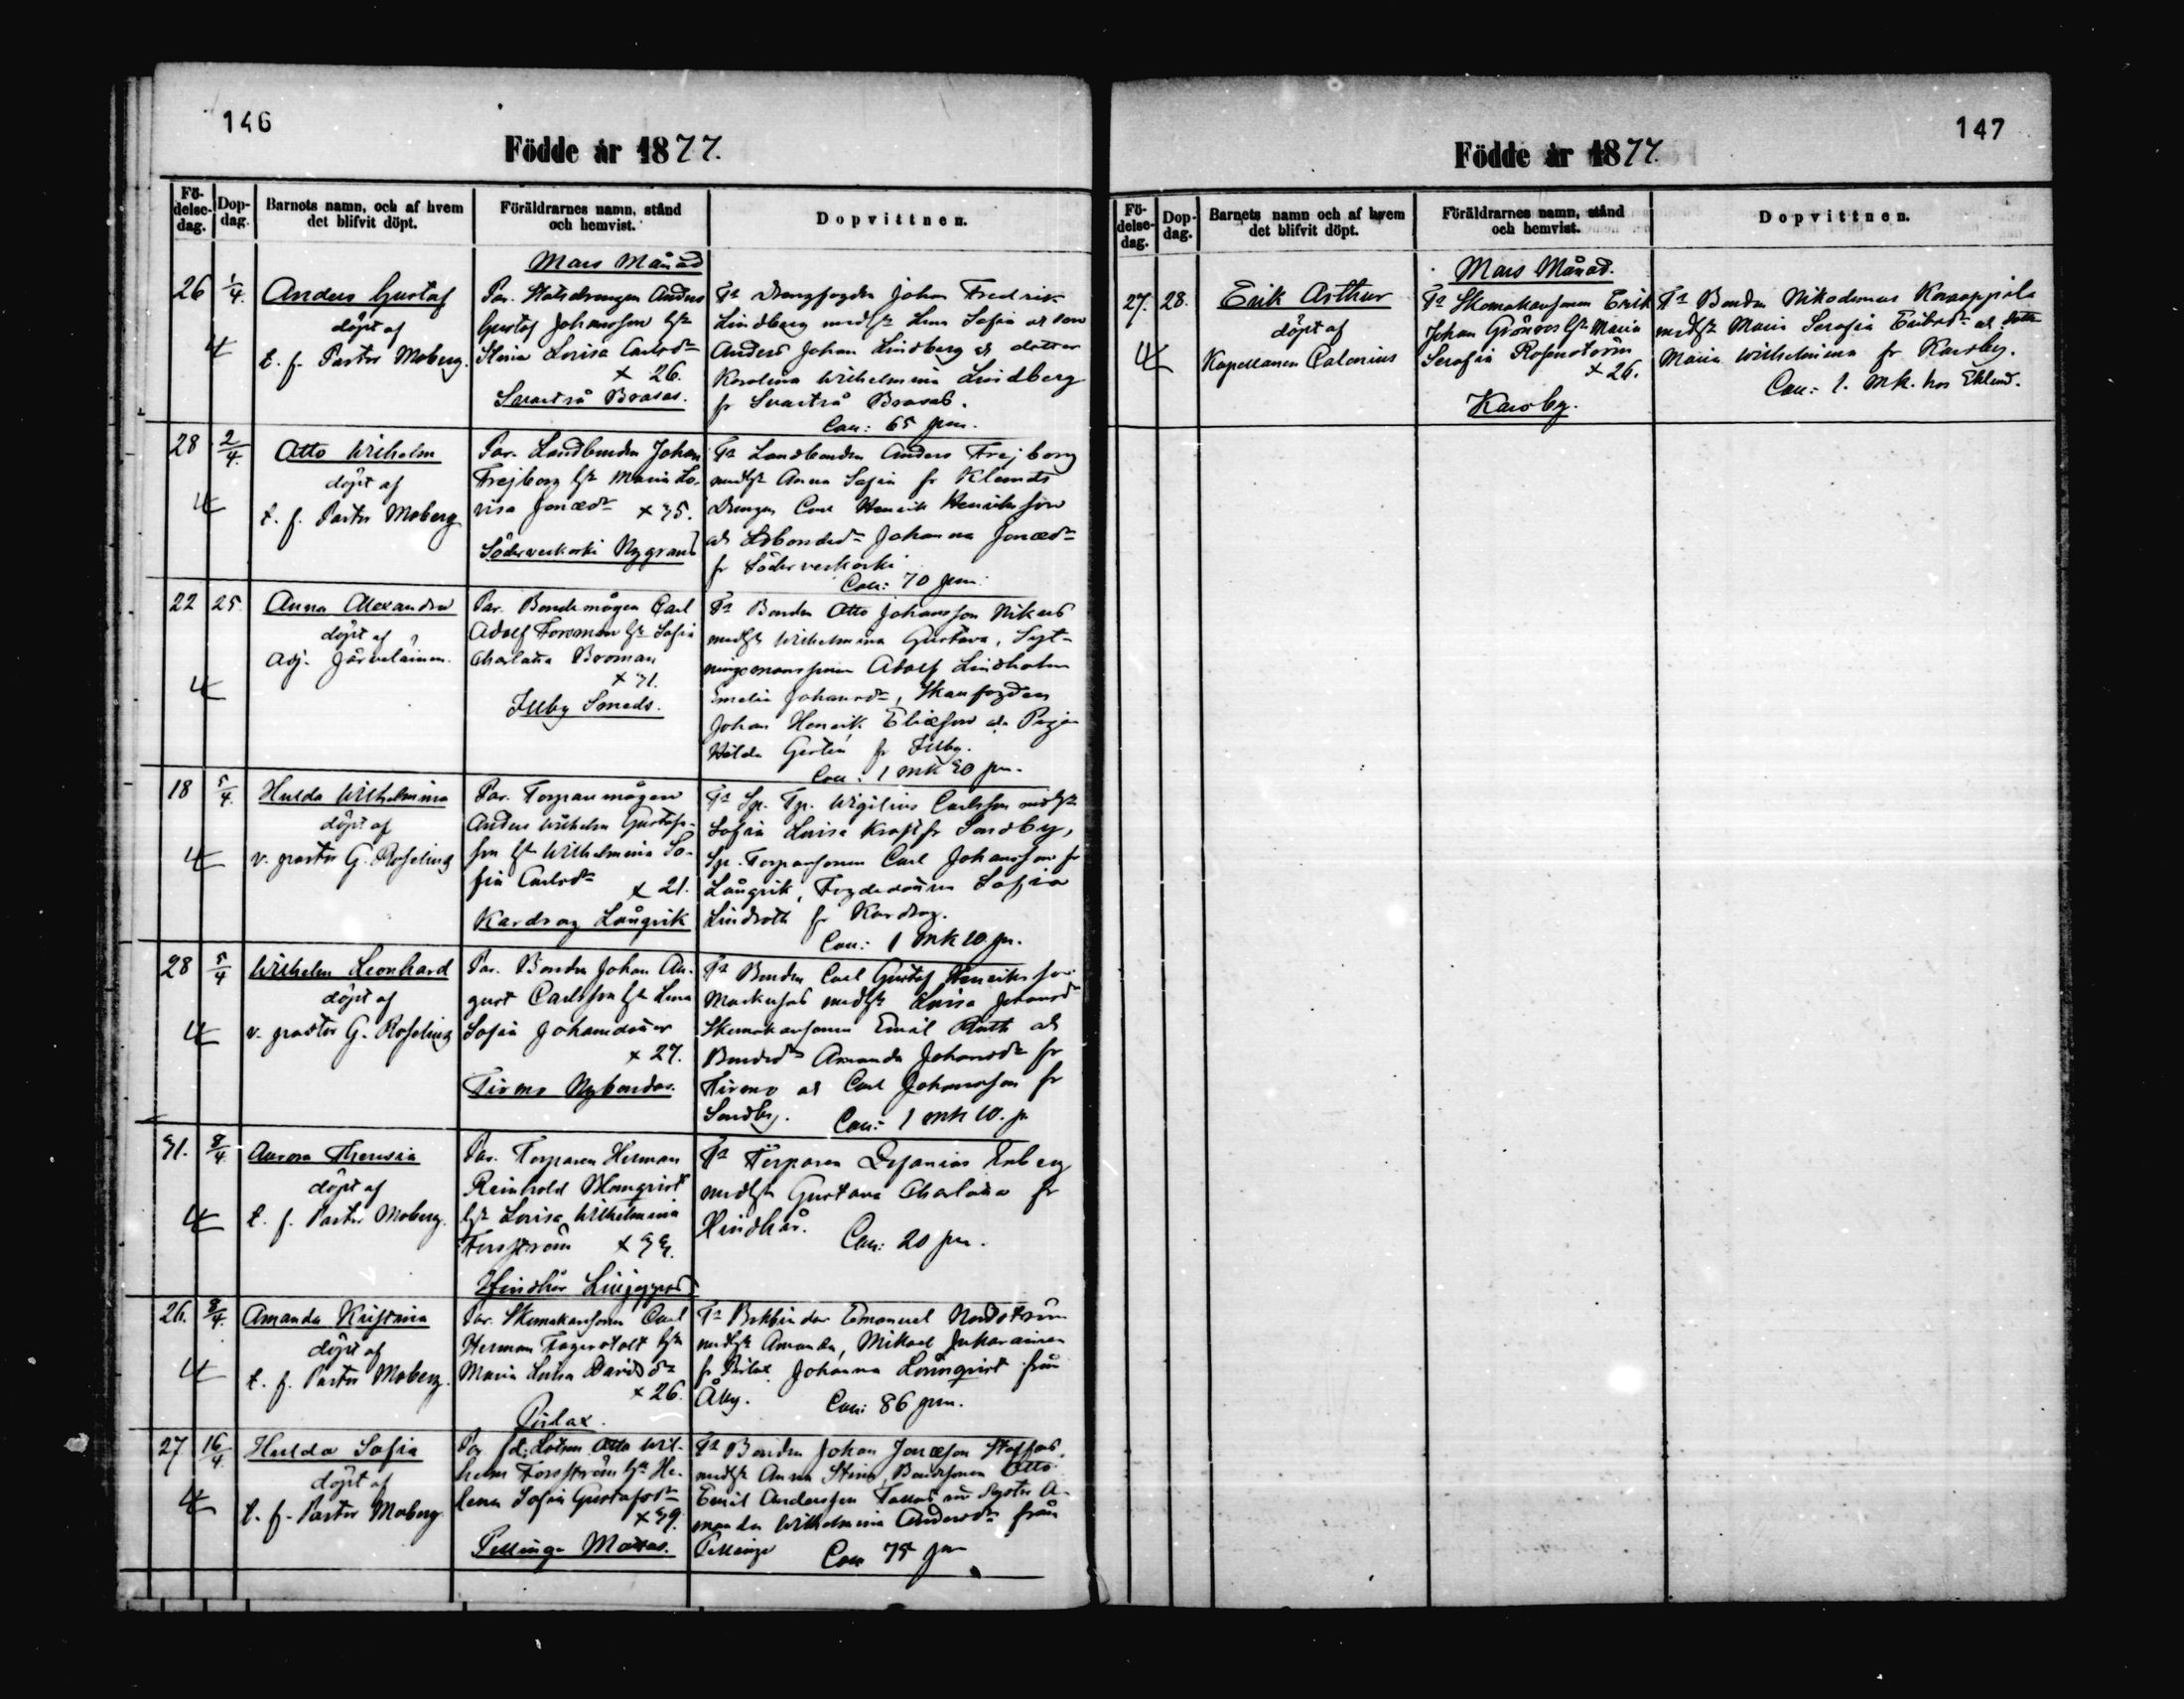 146
Födde år 1877.
Fö-
delse-
dag.
Dop-
dag.
Barnets namn, och af hvem
det blifvit döpt.
Föräldrarnes namn, stånd
och hemvist.
Dopvittnen.
Mars Månad
26 1/4.
Anders Gustaf
döpt af
t. f. Pastor Moberg.
Par. Statsdrengen Anders
Gustaf Johansson hstr
Maria Lovisa Carlsdr
x 26.
Svartså Brasas.
Ts Drengfogden Johan Fredrik
Lindberg medhstr Lena Sofia at son
Anders Johan Lindberg at dotter
Karolina Wilhelmina Lindberg
fr Svartså Brasas.
Coll: 65 pn.
28 2/4.
Otto Wilhelm
döpt af
t. f. Pastor Moberg
Par. Landbonden Johan
Frejborg hstr Maria Lo-
visa Jonædr x 35.
Söderveckoski Nygrans
Ts Landbonden Anders Frejborg
medhstr Anna Sofia fr Klemets
Drengen Carl Henrik Henriksson
at Ldbondedr Johanna Jonædr
fr Söderveckoski
Coll: 70 pn.
22 25.
Anna Alexandra
döpt af
Adj. Järveläinen.
Par. Bondemågen Carl
Adolf Forsman hstr Sofia
Charlotta Broman
x 31.
Illby Smeds.
Ts Bonden Otto Johansson Nikus
medhstr Wilhelmina Gustava, Syt-
ningsmanssonen Adolf Lindholm
Emelia Johansdr, Skaufogden
Johan Henrik Eliæson at Pigan
Hilda Gestin fr Illby.
Coll: 1 mk 20 pn.
18 5/4.
Hulda Wilhelmina
döpt af
v. pastor G. Roseling
Par. Torparemågen
Anders Wilhelm Gustafs-
son hstr Wilhelmina So-
fia Carlsdr x 21.
Kardrag Långvik
Ts Sp. Tp. Wigilius Carlsson medhstr
Sofia Lovisa Kraft fr Sandby,
Sp. Torparsonen Carl Johansson fr
Långvik, Fogdedottren Sofia
Lindroth fr Kardrag.
Coll: 1 mk 10 pn.
28 5/4
Wilhelm Leonhard
döpt af
v. pastor G. Roseling
Par. Bonden Johan Au-
gust Carlsson hstr Lena
Sofia Johansdotter
x 27.
Tirmo Nybondas.
Ts Bonden Carl Gustaf Henriksson
Markusas medhstr Lovisa Johansdr
Skomakarsonen Emil Ruth at
Bondedr Amanda Johansdr fr
Tirmo at Carl Johansson fr
Sandby. Coll: 1 mk 10. p
31. 8/4.
Aurora Theresia
döpt af
t. f. Pastor Moberg.
Par. Torparen Herman
Reinhold Blomqvist
hstr Lovisa Wilhelmina
Forsström x 33.
Hindhår
Ts Torparen Zefanias Enberg
medhstr Gustava Charlotta fr
Hindhår. Coll: 20 pn.
26. 8/4.
Amanda Kristina
döpt af
t. f. Pastor Moberg.
Par. Skomakarsonen Carl
Herman Fagerstolt hstr
Maria Lovisa Davidsdr
x 26.
Pirlax.
Ts Bokbindar Emanuel Nordström
medhstr Amanda, Mikael Juhanainen
fr Pirlax Johanna Lönnqvist från
Åby. Coll: 86 pn.
27 16/4.
Hulda Sofia
döpt af
t. f. Pastor Moberg
Par. fd: Lotsen Otto Wil-
helm Forsström hstr He-
lena Sofia Gustafsdr
x 39.
Pellinge Mattas.
Ts Bonden Johan Jonæson Staffas,
medhstr Anna Stina, Bondsonen Otto
Emil Andersson Tallas syster A-
manda Wilhelmina Andersdr från
Pellinge Coll 75 pn
147
Födde år 1877.
Fö-
delse-
dag.
Dop-
dag.
Barnets namn och af hvem
det blifvit döpt.
Föräldrarnes namn, stånd
och hemvist.
Dopvittnen.
Mars Månad.
27. 28.
Erik Arthur
döpt af
Kapellanen Calonius
Ts Skomakarsonen Erik
Johan Grönroos hstr Maria
Serafia Rosenström
x 26.
Karsby.
Ts Bonden Nikodemus
medhstr Maria Serafia Eriksdr at dottr
Maria Wilhelmina fr Karsby.
Coll: 1. mk. hos Eklund.